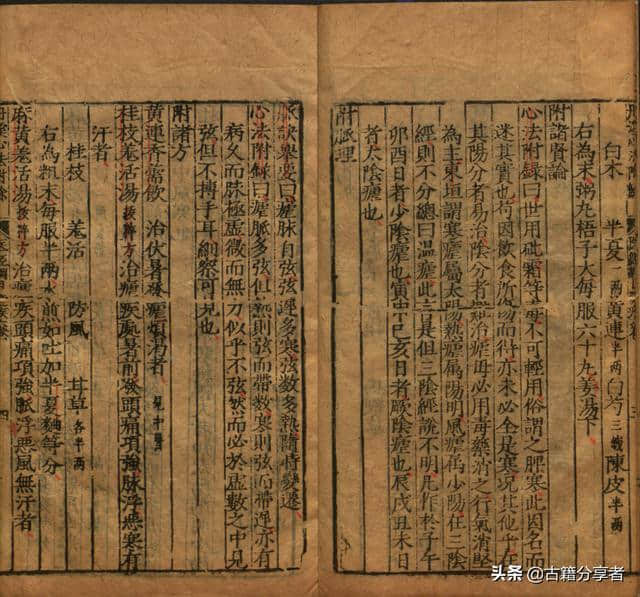 白朮 半夏一兩 黃連半兩 白芍三錢 陳皮半兩
右為末粥丸梧子大每服六十丸姜湯下
附諸賢論
心法附錄曰世用砒霜等毒不可輕用俗謂之脾寒此因名而
迷其實也何因飲食所傷而得亦未必全是寒況其他乎在
其陽分者易治陰分者難治瘧母必用毒藥消之行氣消堅
為主東垣謂寒瘧屬太陽熱瘧屬陽明風瘧屬少陽在三陰
經則不分總曰溫瘧此言是但三陰經說不明凡作於子午
卯酉日者少陰瘧也寅申巳亥日者厥陰瘧也辰戌丑未日
者太陰瘧也
附脈理
脈訣舉要曰瘧脈自弦弦遲多寒弦數多熱隨時變遷
心法附錄曰瘧脈多弦但熱則弦而帶數寒則弦而帶遲亦有
病久而脈極虛微而無力似乎不弦然而必於虛數之中見
弦但不搏手耳細察可見也
附諸方
黃連香薷飲 治伏暑發瘧煩渴者 見中暑
桂枝羗活湯 拔萃方 治瘧疾處暑前發頭痛項強脉浮惡寒有
汗者
桂枝 羗活 防風 甘草各半兩
右為粗末每服半兩水煎如吐加半夏麯等分
麻黃羗活湯 拔萃方 治瘧疾頭痛項強脈浮惡風無汗者
头条 @古籍分享者